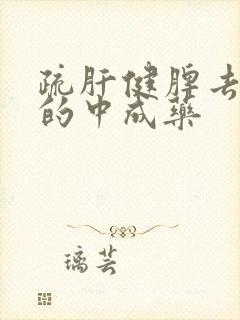 疏肝健脾去
的中成药
璃芸